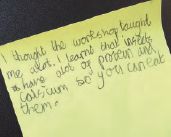 I thought the workshop taught
me alot. I learnt that insects
have alot of protein and
calcium so you can eat
them.